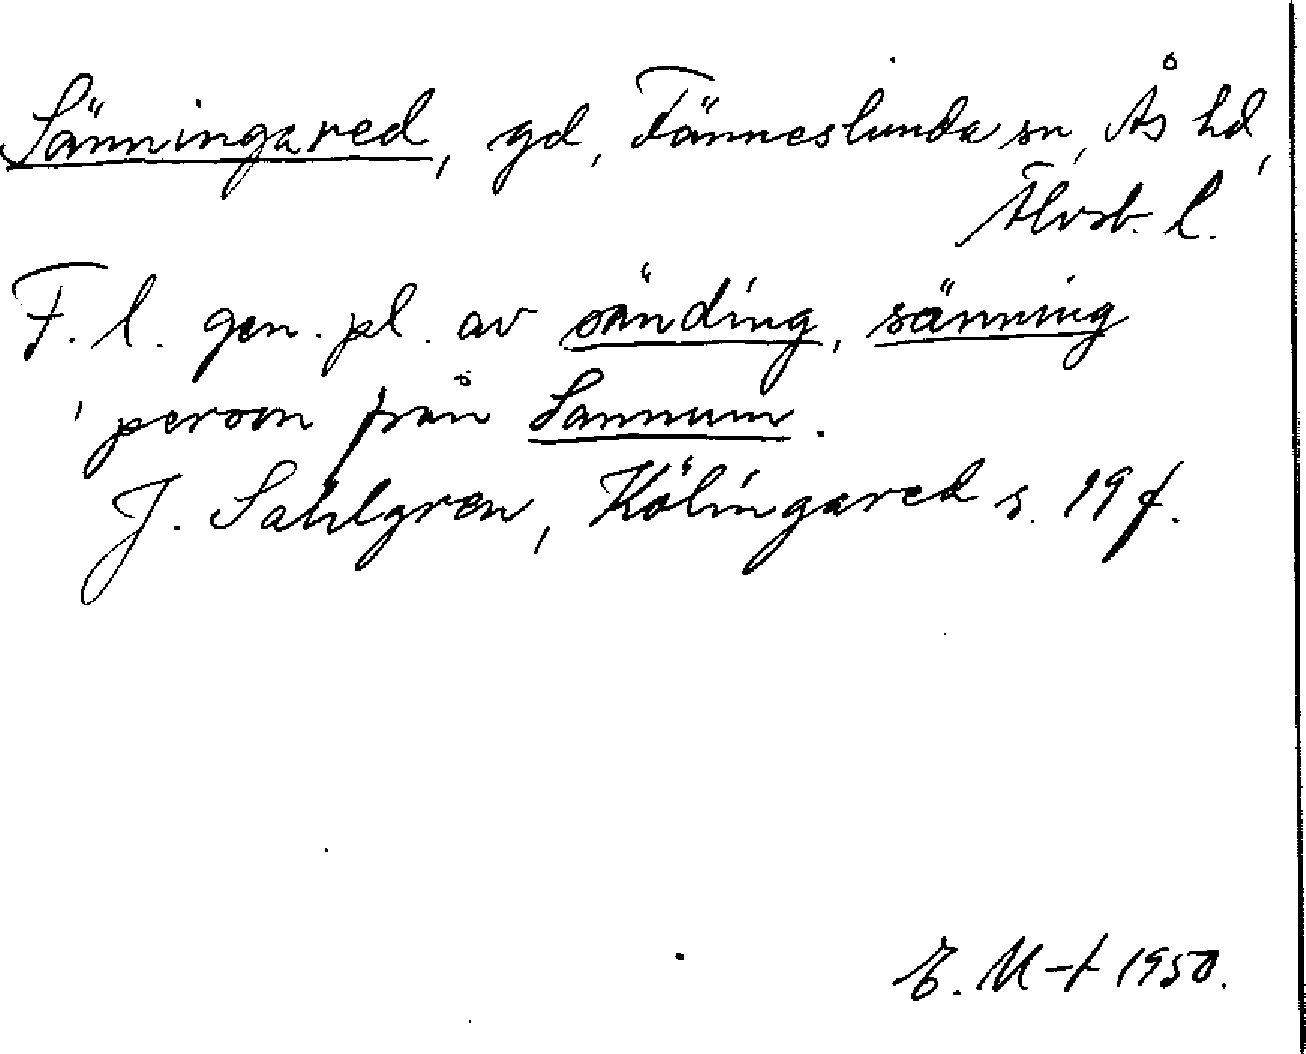 Sänningared, gd, Fänneslunda sn, Ås hd,
Älvsb. l.
F. l. gen. pl. av sänding, sänning
'person från Sannum.
J. Sahlgren, Kölingared s. 19 f.
E. M-t 1950.